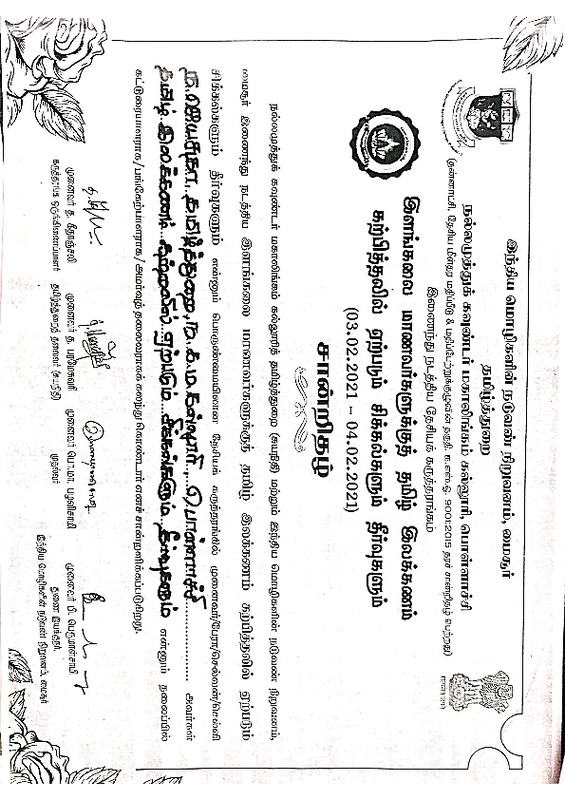 இந்திய மொழிகளின் நடுவண் நிறுவனம், மைசூர்
தமிழ்த்துறை
நல்லமுத்துக் கவுண்டர் மகாலிங்கம் கல்லூரி, பொள்ளாச்சி
(தன்னாட்சி, தேசிய மீள்தர மதிப்பீடு & மதிப்பேற்றுக்குழுவின் தகுதி, உ.எஸ்.ஓ. 9001:2015 தரச் சான்றிதழ் பெற்றது)
இணைந்து நடத்திய தேசியக் கருத்தரங்கம்
இளங்கலை மாணவர்களுக்குத் தமிழ் இலக்கணம்
கற்பித்தலில் ஏற்படும் சிக்கல்களும் தீர்வுகளும்
(03.02.2021 – 04.02.2021)
சான்றிதழ்
நல்லமுத்துக் கவுண்டர் மகாலிங்கம் கல்லூரித் தமிழ்த்துறை (சுயநிதி) மற்றும் இந்திய மொழிகளின் நடுவண் நிறுவனம்,
மைசூர் இணைந்து நடத்திய இளங்கலை மாணவர்களுக்குத் தமிழ் இலக்கணம் கற்பித்தலில் ஏற்படும்
சிக்கல்களும் தீர்வுகளும் என்னும் பொருண்மையிலான தேசியக் கருத்தரங்கில் முனைவர்/பேரா/செல்வன்/செல்வி
ந.ஜெயசுதா, தமிழ்த்துறை, ந.க.ம.கல்லூரி, பொள்ளாச்சி அவர்கள்
தமிழ் இலக்கணம் கற்றலில் ஏற்படும் சிக்கல்களும், தீர்வுகளும் என்னும் தலைப்பில்
கட்டுரையாளராக/பங்கேற்பாளராக/அமர்வுத் தலைவராகக் கலந்து கொண்டார் எனச் சான்றளிக்கப்படுகிறது.
முனைவர் த. கீதாஞ்சலி முனைவர் த. முனைவர் பொ.மா. பழனிசாமி முனைவர் பி. பெருமாள்சாமி
கருத்தரங்க ஒருங்கிணைப்பாளர் தமிழ்த்துறைத் தலைவர் (சுயநிதி) முதல்வர் துணை இயக்குநர்
இந்திய மொழிகளின் நடுவண் நிறுவனம், மைசூர்